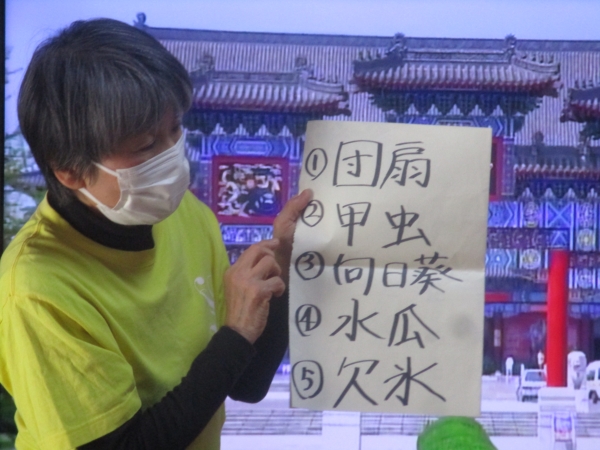 ①団扇
②甲虫
③向日葵
④水瓜
⑤欠氷